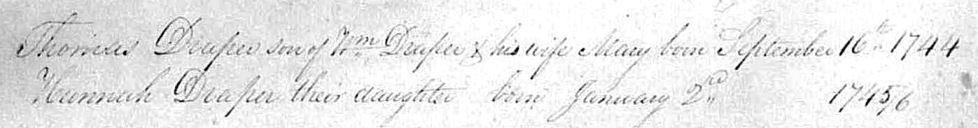 Thomas Draper son of Wm Draper & his wife Mary born September 16th 1744
Hannah Draper their daughter born January 2nd 1745/6